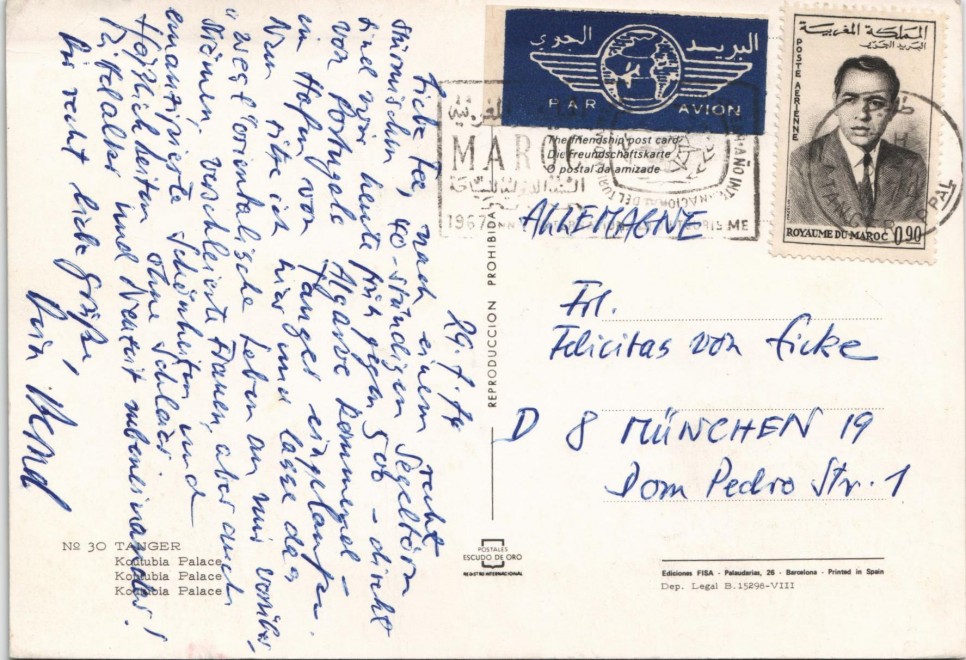 البريد الجوي
PAR AVION
The friendship post card
Die Freundschaftskarte
O postal da amizade
المملكة المغربية
البريد الجوي
POSTE AERIENNE
ROYAUME DU MAROC 0,90
MAROC
1967
TANGER
29.7.74
Liebe Fee, nach einem recht
stürmischen, 40-stündigen Segeltörn
sind wir heute früh gegen 5 00 – direkt
von Portugals Algarve kommend –
im Hafen von Tanger eingelaufen.
Nun sitze ich hier und lasse das
orientalische Leben an mir vorüber
strömen, verschleierte Frauen, aber auch
emanzipierte Schönheiten und
Häßlichkeiten ohne Schleier.
Mittelalter und Neuzeit nebeneinander!
Dir recht liebe Grüße,
Dein Bernd
REPRODUCCION PROHIBIDA
ALLEMAGNE
Frl.
Felicitas von Ficke
D 8 MÜNCHEN 19
Dom Pedro Str. 1
Nº 30 TANGER
Koutubia Palace
Koutubia Palace
Koutubia Palace
POSTALES
ESCUDO DE ORO
REGISTRO INTERNACIONAL
Ediciones FISA - Palaudarias, 26 - Barcelona - Printed in Spain
Dep. Legal B. 15298-VIII